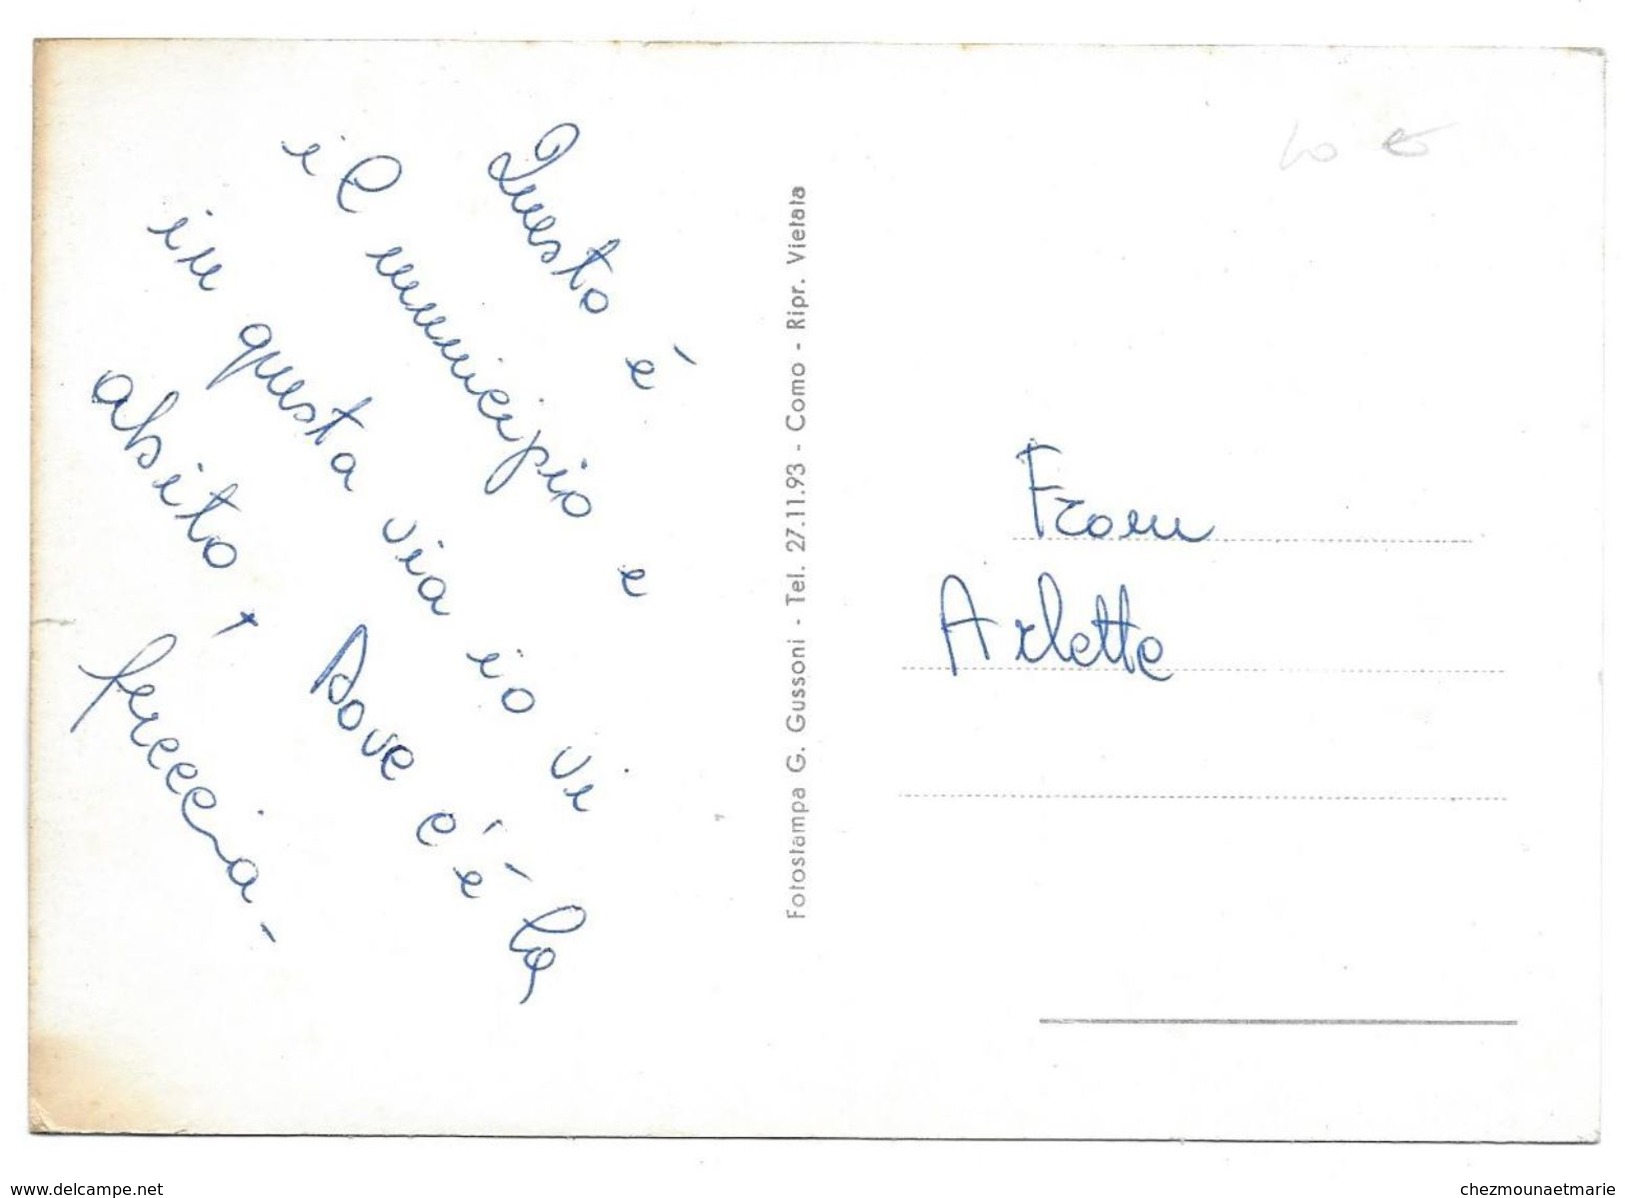 Questo è
il municipio e
in questa via io vi
abito, Dove c'è la
freccia -
Fotostampa G. Gussoni - Tel. 27.11.93 - Como - Ripr. Vietata
From
Arlette
www.delcampe.net
chezmounaetmarie